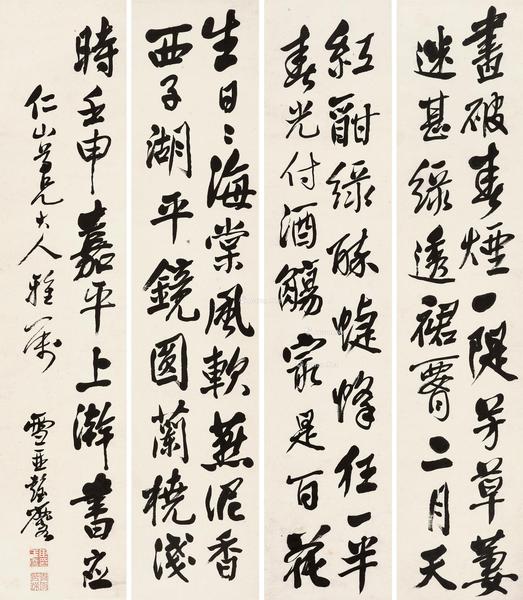 畫破春煙一隄芳草萋
迷甚綠透裙腰二月天
紅酣綠醉蜨蜂狂一半
春光付酒觴最是百花
生日々海棠風軟燕泥香
西子湖平鏡圓蘭橈淺
時壬申嘉平上澣書应
仁山尊兄大人雅属
雪